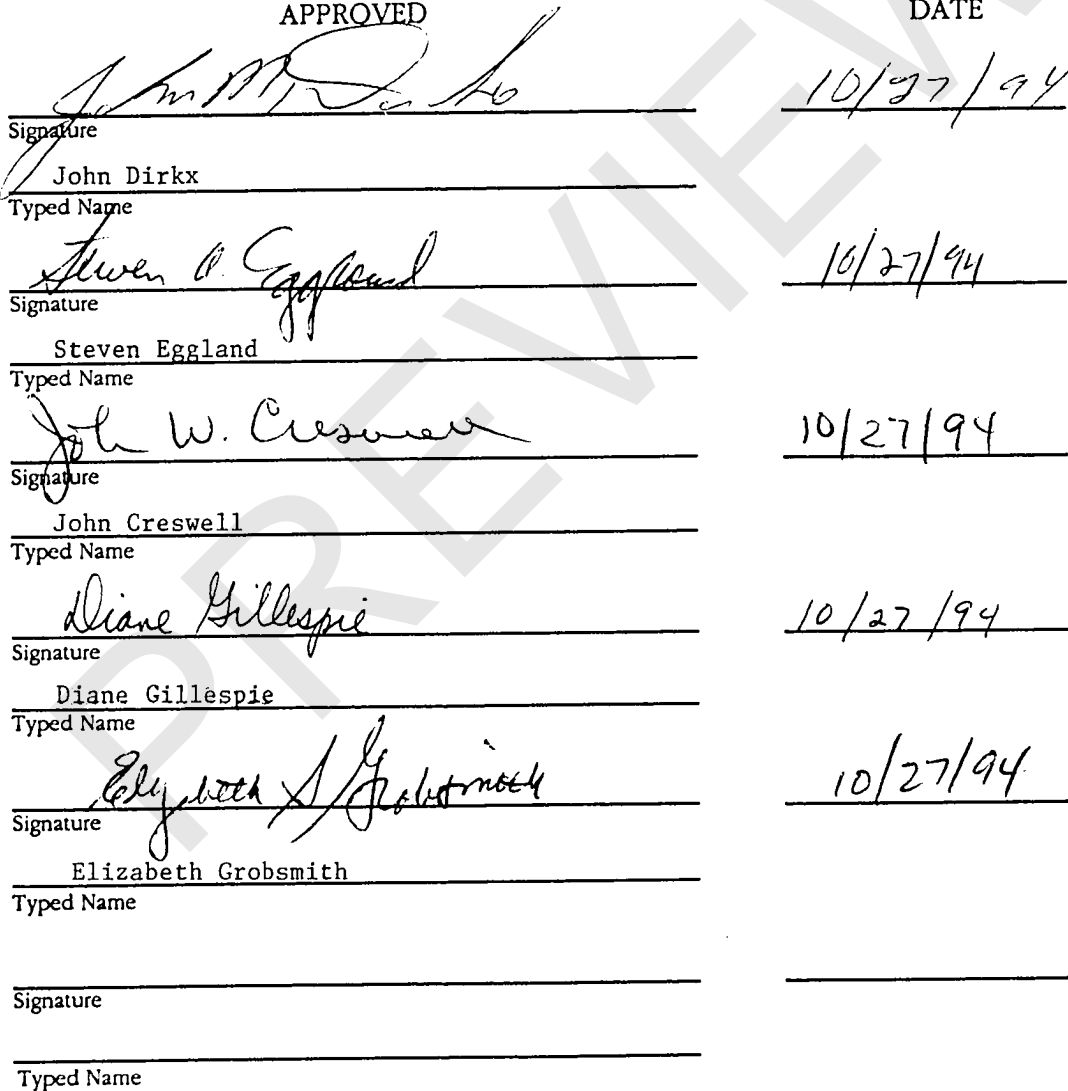 APPROVED DATE
John M. Dirkx 10/27/94
Signature
John Dirkx
Typed Name
Steven A. Eggland 10/27/94
Signature
Steven Eggland
Typed Name
John W. Creswell 10/27/94
Signature
John Creswell
Typed Name
Diane Gillespie 10/27/94
Signature
Diane Gillespie
Typed Name
Elizabeth S. Grobsmith 10/27/94
Signature
Elizabeth Grobsmith
Typed Name
Signature
Typed Name
PREVIEW